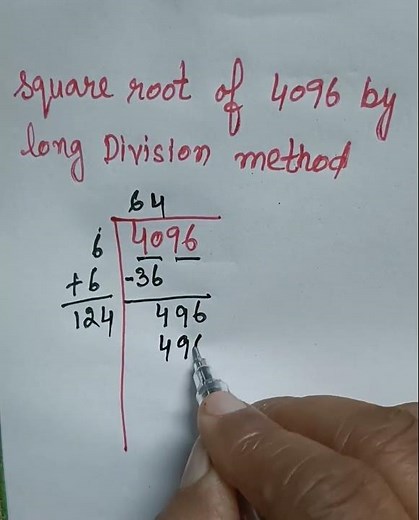 square root of 4096 by
long Division method
64
6 4096
+6 -36
124 496
496